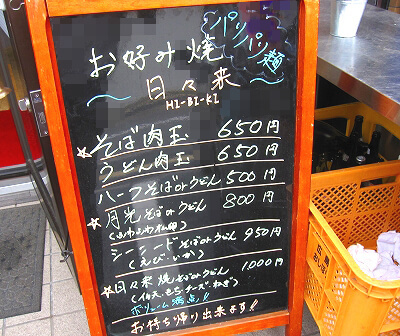 パリパリ麺
お好み焼
〜日々来
HI-BI-KI
☆そば肉玉 650円
うどん肉玉 650円
ハーフそばorうどん 500円
☆月光そばorうどん 800円
シーフードそばorうどん 950円
(えび・いか)
☆日々来焼そばorうどん 1000円
(イカ天、もち、チーズ、ねぎ)
ボリューム満点!!
お持ち帰り出来ます!!